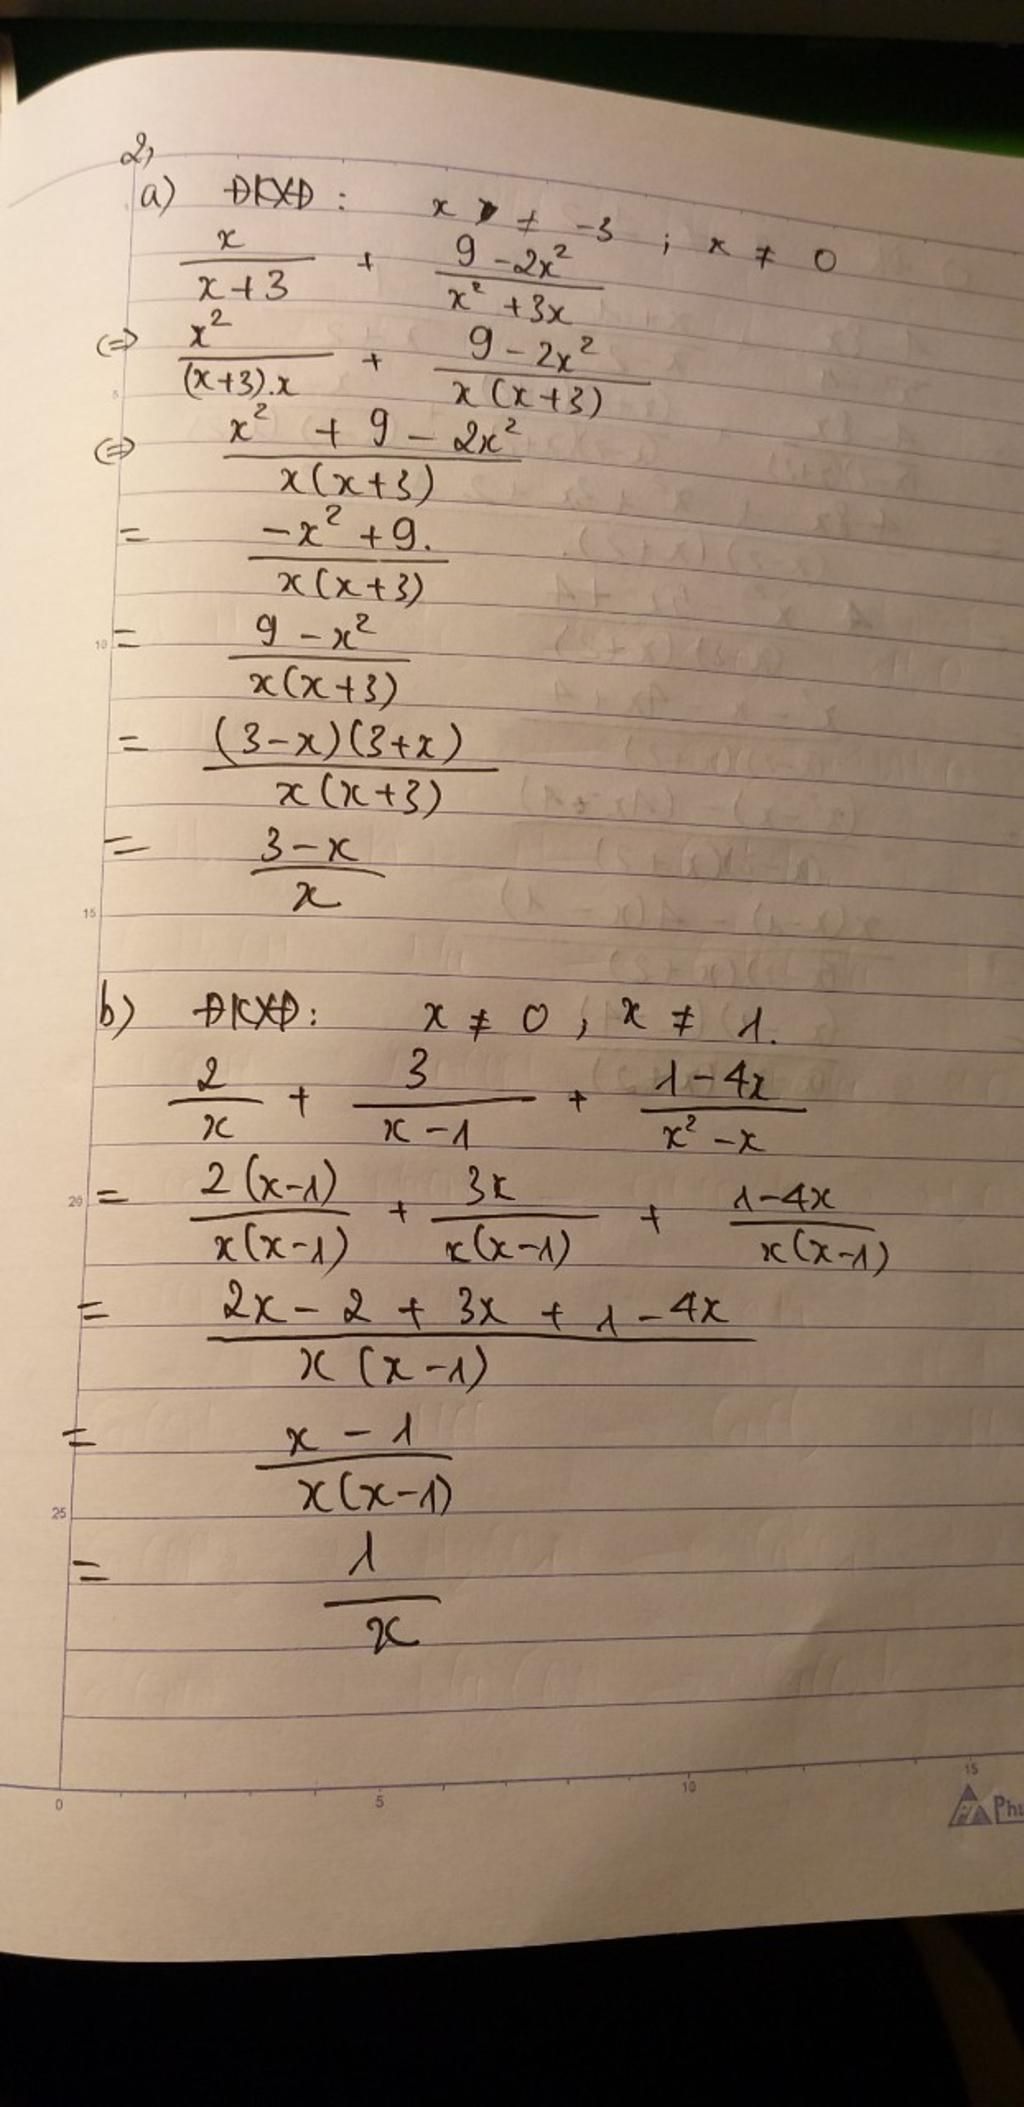 2,
a) ĐKXĐ: x ≠ -3 ; x ≠ 0
x/(x+3) + (9-2x²)/(x²+3x)
(=) x²/((x+3).x) + (9-2x²)/(x(x+3))
(=) (x²+9-2x²)/(x(x+3))
= (-x²+9.)/(x(x+3))
= (9-x²)/(x(x+3))
= ((3-x)(3+x))/(x(x+3))
= (3-x)/x
b) ĐKXĐ: x ≠ 0 ; x ≠ 1.
2/x + 3/(x-1) + (1-4x)/(x²-x)
= (2(x-1))/(x(x-1)) + 3x/(x(x-1)) + (1-4x)/(x(x-1))
= (2x-2+3x+1-4x)/(x(x-1))
= (x-1)/(x(x-1))
= 1/x
5
10
15
20
25
0 5 10 15